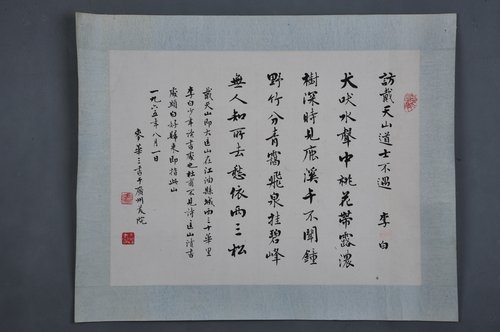 訪戴天山道士不遇 李白
犬吠水聲中桃花帶露濃
樹深時見鹿溪午不聞鐘
野竹分青靄飛泉挂碧峰
無人知所去愁依兩三松
戴天山即大匡山在江油縣城西三十華里
李白少年讀書處也杜甫不見詩匡山讀書
處頭白好歸來即指此山
一九六五年八月一日